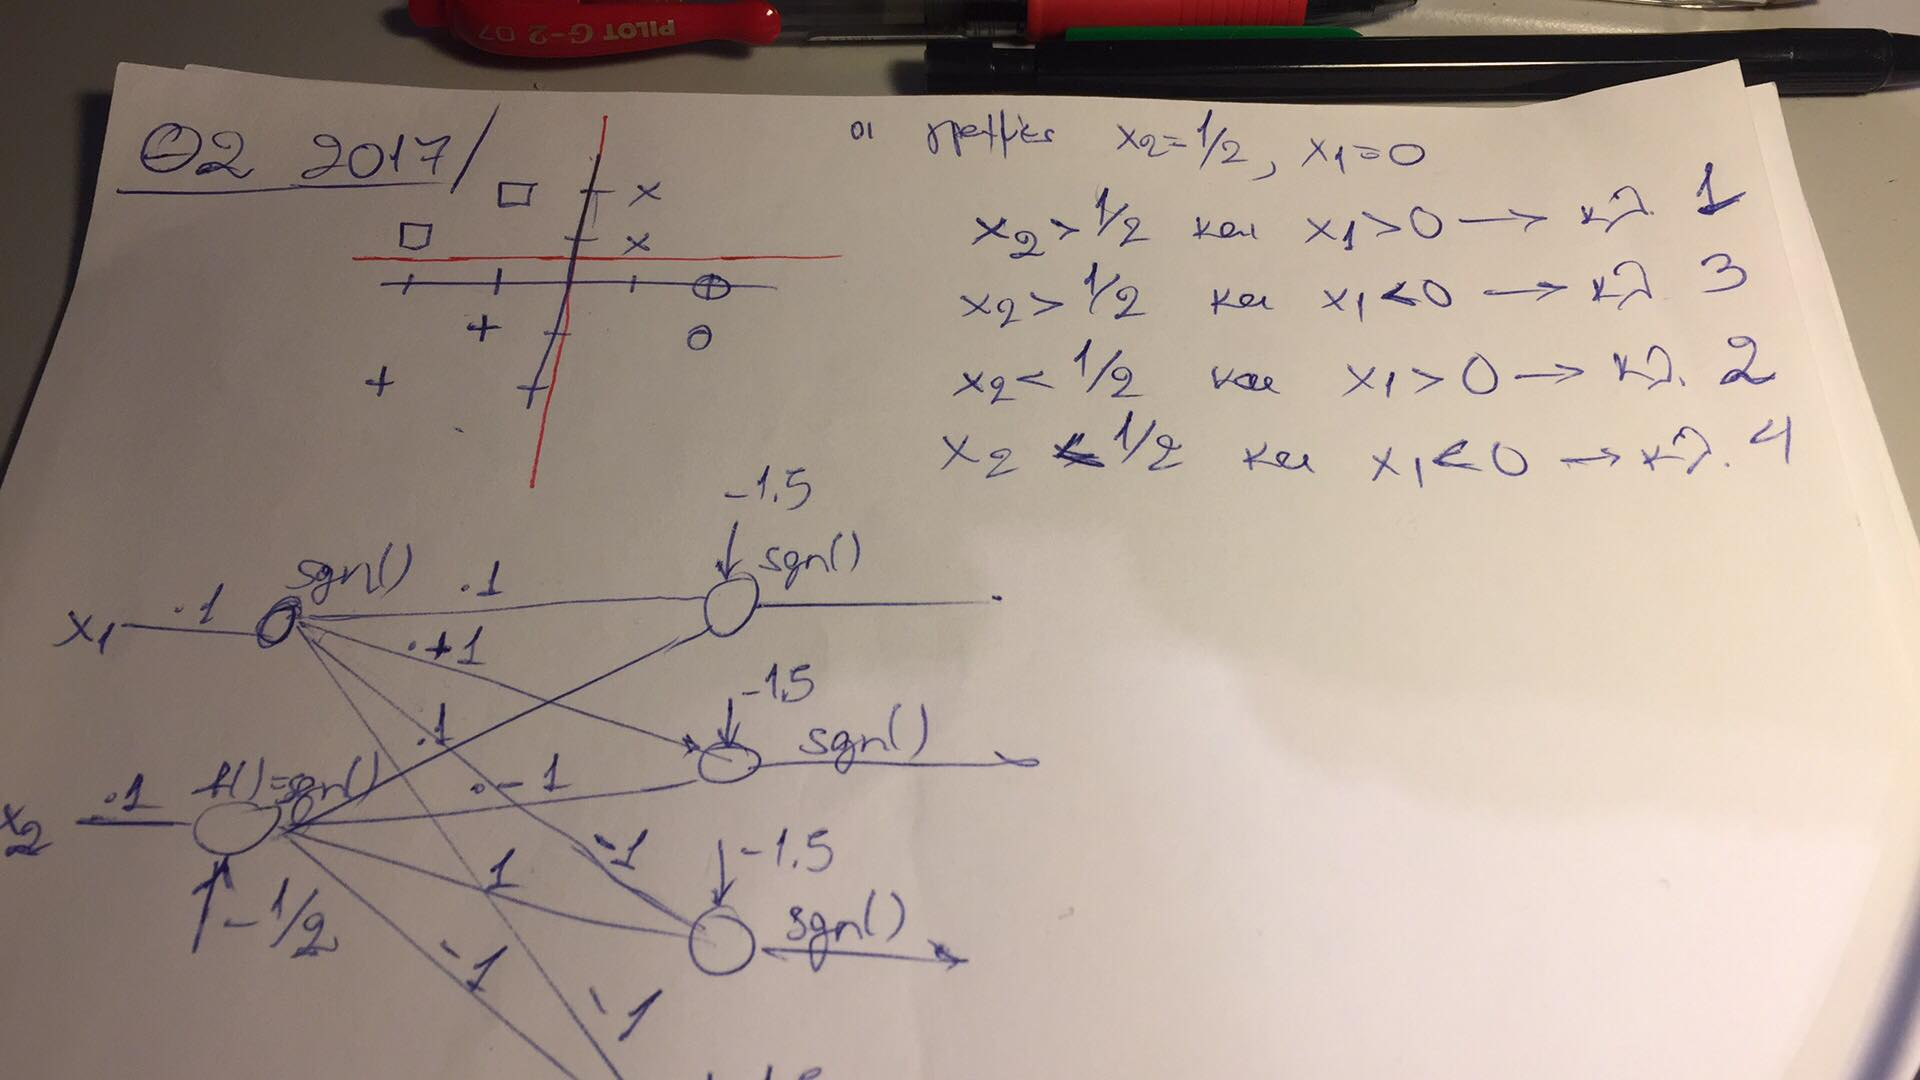 PILOT G-2 07
Θ2 2017/
οι γραμμές x2=1/2, x1=0
x2>1/2 και x1>0 → κλ. 1
x2>1/2 και x1<0 → κλ 3
x2<1/2 και x1>0 → κλ. 2
x2<1/2 και x1<0 → κλ. 4
-1.5
sgn()
sgn()
·1
x1
·1
·+1
-1.5
·1
sgn()
x2
·1
f()=sgn()
·-1
-1
-1.5
1
sgn()
-1/2
-1
-1